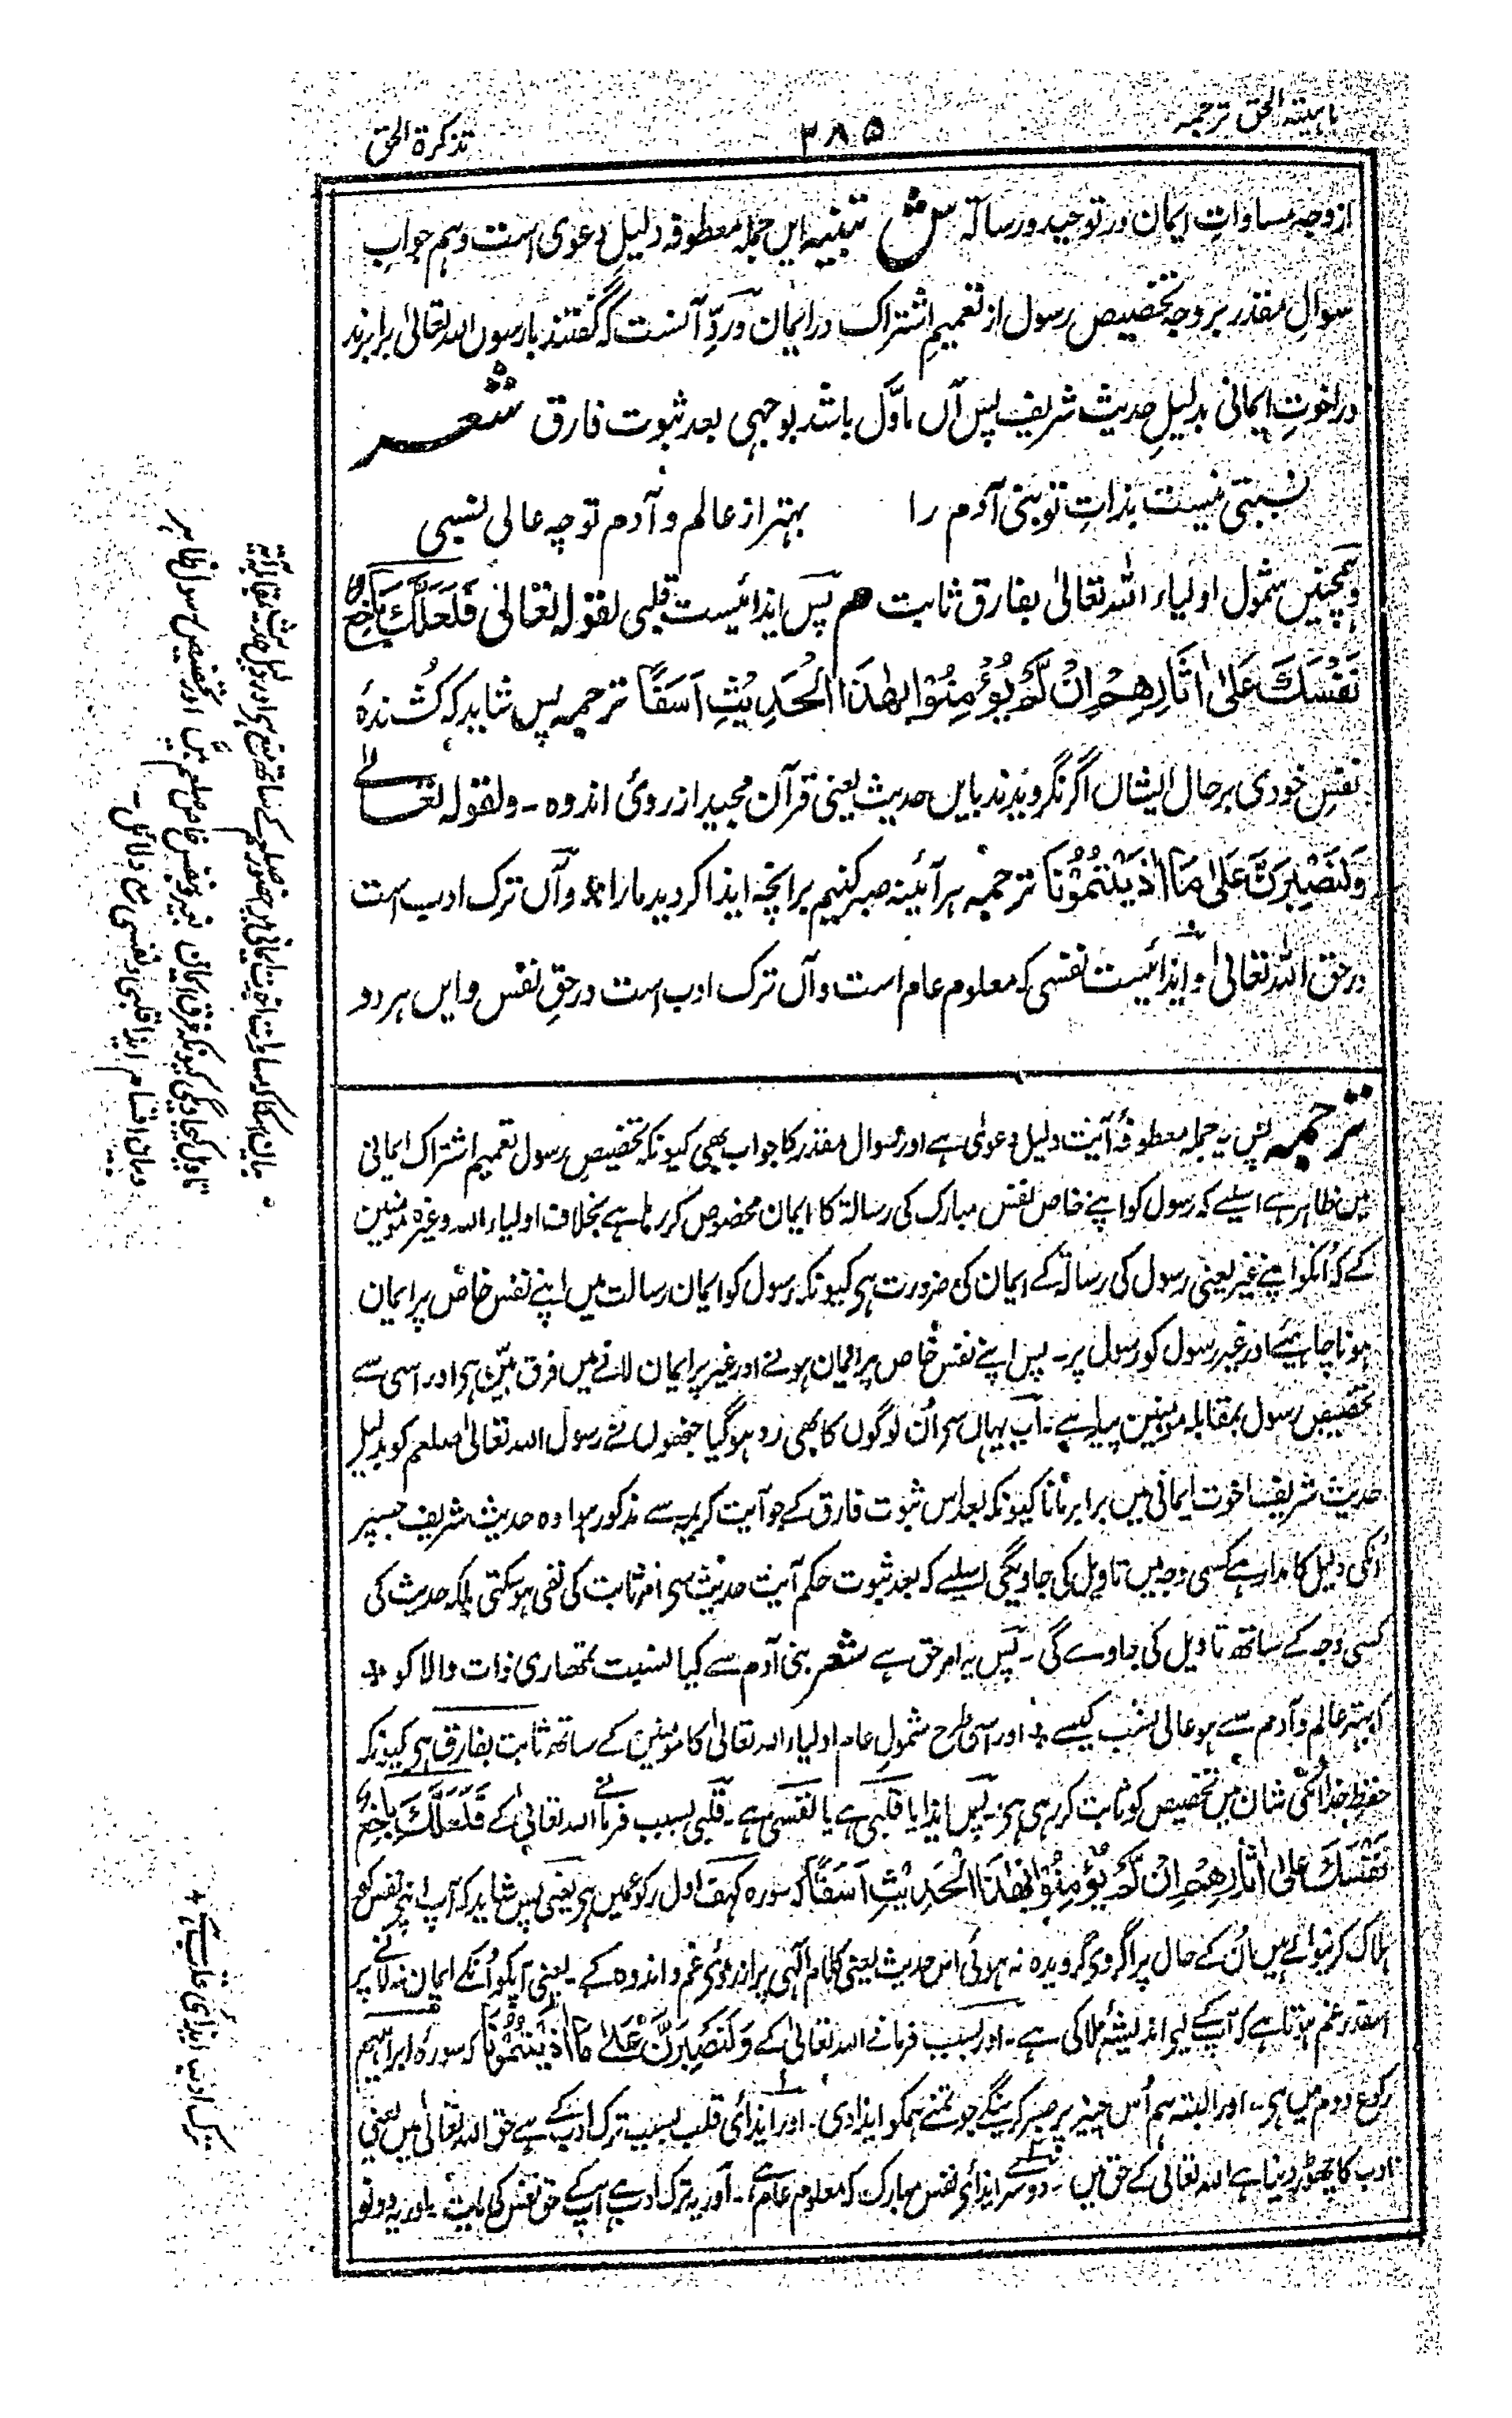 ماہیتہ الحق ترجمہ
۳۸۵
تذکرۃ الحق
از وجہ مساواتِ ایمان در توحید و رسالۃ ش تنبیہ ایں جملہ معطوفہ دلیلِ دعوی است و ہم جوابِ
سوالِ مقدر بر وجہ تخصیص رسول از تعمیمِ اشتراک در ایمان و ردِّ آنست کہ گفتند با رسول اللہ تعالیٰ برابرند
در اخوتِ ایمانی بدلیلِ حدیث شریف پس آں ماوَّل باشد بوجہی بعد ثبوت فارق شعر
نسبتی نیست بذاتِ تو بنی آدم را بہتر از عالم و آدم تو چہ عالی نسبی
و ہمچنیں شمول اولیاء اللہ تعالیٰ بفارق ثابت ھم پس ایذائیست قلبی لقولہ تعالیٰ فَلَعَلَّكَ بَاخِعٌ
نَفْسَكَ عَلٰی اٰثَارِهِمْ اِنْ لَّمْ يُؤْمِنُوْا بِهٰذَا الْحَدِيْثِ اَسَفًا ترجمہ پس شاید کہ کُشندہ
نفس خودی بر حال ایشاں اگر نگرویدند بایں حدیث یعنی قرآن مجید از روئ اندوہ ۔ ولقولہ تعالےٰ
وَلَنَصْبِرَنَّ عَلٰی مَا اٰذَيْتُمُوْنَا ترجمہ ہر آئینہ صبر کنیم بر انچہ ایذا کردید مارا و آں ترک ادب است
در حق اللہ تعالیٰ و ایذائیست نفسی کہ معلوم عام است و آں ترک ادب است در حقِ نفس و ایں ہر دو
ترجمہ پس یہ جملہ معطوفہ آیت دلیل دعویٰ ہے اور سوال مقدر کا جواب بھی کیونکہ تخصیصِ رسول تعمیم اشتراک ایمانی
میں ظاہر ہے اسلیے کہ رسول کو اپنے خاص نفس مبارک کی رسالۃ کا ایمان مخصوص کر رہا ہے بخلاف اولیاء اللہ وغیرہ مومنین
کے کہ اُنکو اپنے غیر یعنی رسول کی رسالۃ کے ایمان کی ضرورت ہی کیونکہ رسول کو ایمان رسالت میں اپنے نفس خاص پر ایمان
ہونا چاہیئے اور غیر رسول کو رسول پر ۔ پس اپنے نفس خاص پر ایمان ہونے اور غیر پر ایمان لانے میں فرق مبیّن ہی اور اسی سے
تخصیص رسول بمقابلہ مومنین پیدا ہے ۔ اب یہاں سی اُن لوگوں کا بھی رد ہوگیا جنھوں نے رسول اللہ تعالیٰ صلعم کو بدلیل
حدیث شریف اخوت ایمانی میں برابر مانا کیونکہ بعد اس ثبوت فارق کے جو آیت کریمہ سے مذکور ہوا وہ حدیث شریف جسپر
اُنکی دلیل کا مدار ہے کسی وجہ میں تاویل کی جاویگی اسلیے کہ بعد ثبوت حکم آیت حدیث سی امر ثابت کی نفی ہوسکتی بلکہ حدیث کی
کسی وجہ کے ساتھ تاویل کی جاوے گی ۔ پس یہ امر حق ہے شعر بنی آدم سے کیا نسبت تمھاری ذات والا کو
کہ بہتر عالم و آدم سے ہو عالی نسب کیسے اور اسی طرح شمولِ عام اولیاء اللہ تعالیٰ کا مومنین کے ساتھ ثابت بفارق ہی کیونکہ
حفظِ خدا اُنکی شان میں تخصیص کو ثابت کر رہی ہی ۔ پس ایذا یا قلبی ہے یا نفسی ہے ۔ قلبی بسبب فرمانے اللہ تعالیٰ کے فَلَعَلَّكَ بَاخِعٌ
نَفْسَكَ عَلٰی اٰثَارِهِمْ اِنْ لَّمْ يُؤْمِنُوْا بِهٰذَا الْحَدِيْثِ اَسَفًا کہ سورہ کہف اول رکوع میں ہی یعنی پس شاید کہ آپ اپنے نفس کو
ہلاک کرنیوالے ہیں اُن کے حال پر اگر وی گرویدہ نہ ہوئی اس حدیث یعنی کلام الٰہی پر از روئ غم و اندوہ کے ۔ یعنی آپکو اُنکے ایمان نہ لانے پر
اسقدر غم ہوتا ہے کہ آپ کے لیے اندیشۂ ہلاکی ہے ۔ اور بسبب فرمانے اللہ تعالیٰ کے وَلَنَصْبِرَنَّ عَلٰی مَا اٰذَيْتُمُوْنَا کہ سورہ ابراہیم
رکوع دوم میں ہی ۔ اور البتہ ہم اُس چیز پر صبر کرینگے جو تمنے ہمکو ایذا دی ۔ اور ایذائ قلب بسبب ترک ادب کے ہے حق اللہ تعالیٰ میں یعنی
ادب کا چھوڑ دینا ہے اللہ تعالیٰ کے حق میں ۔ دوسرے ایذائ نفس مبارک کہ معلوم عام ہے ۔ اور یہ ترک ادب ہے آپ کے حق نفس کی بابت ۔ اور یہ دونو
بیان اسکا کہ مساوات اخوت ایمانی میں حضور صلعم کے ساتھ
تاویل کیجاویگی کیونکہ فرق ایمان غیر و نفس خاص صلعم میں اور تخصیص رسول ظاہر
در بیان اقسام ایذا قلبی و نفسی مع دلائل ۔
ترک ادب ایذائ قلب ہے